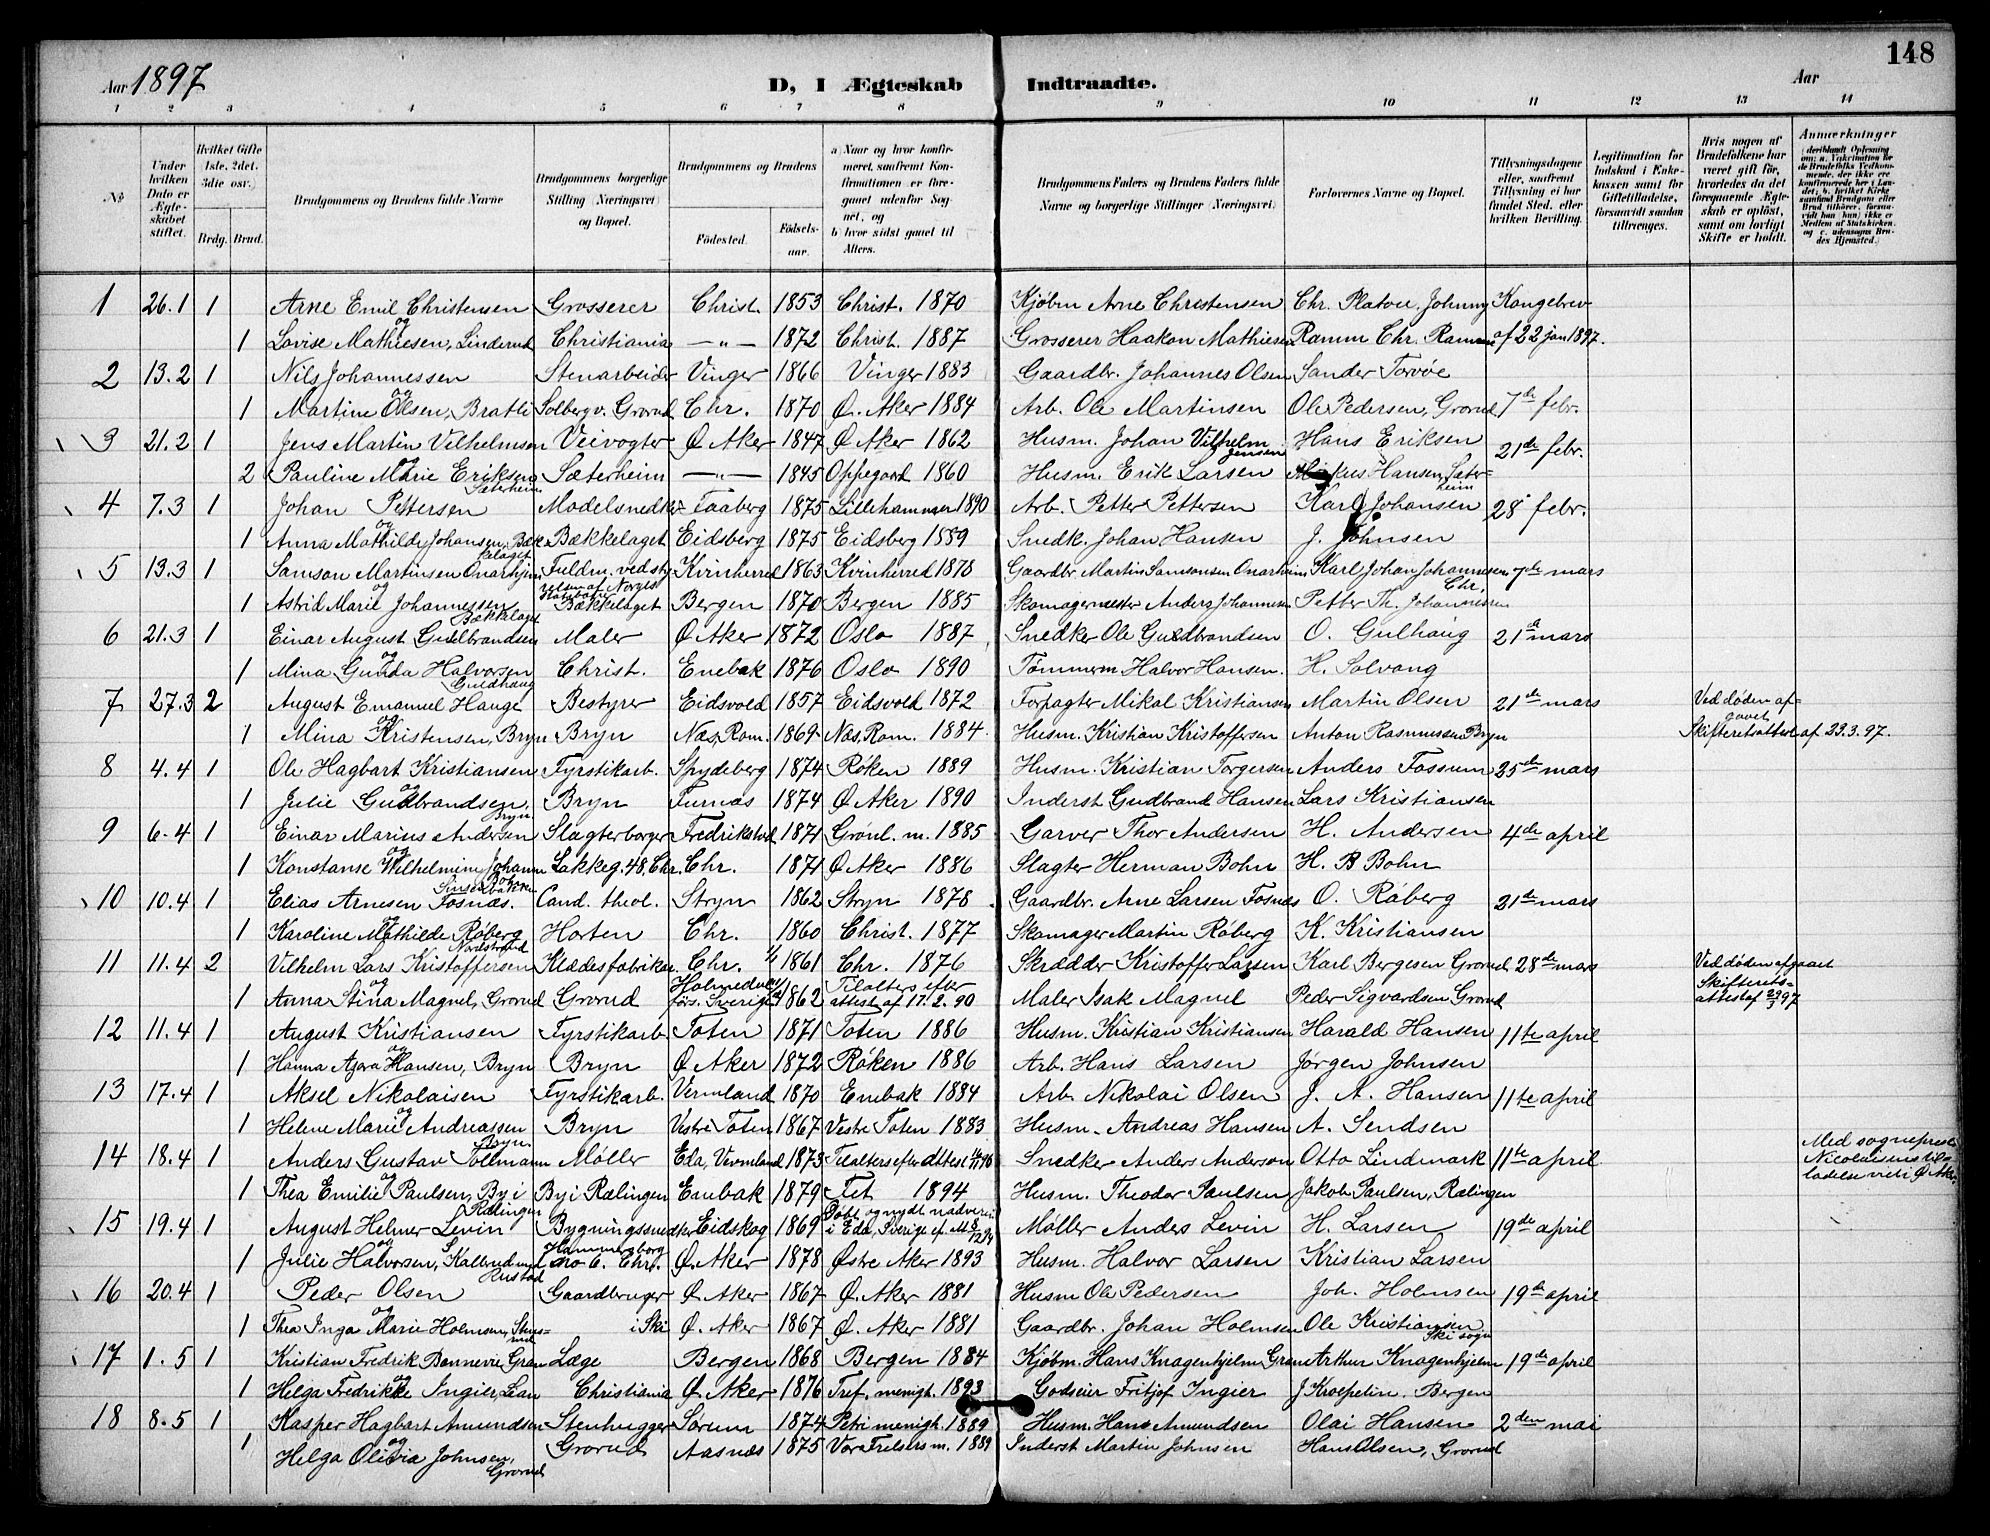 148
Aar 1897 D, I Ægteskab Indtraadte. Aar
1 2 3 4 5 6 7 8 9 10 11 12 13 14
No
Under hvilken Dato er Ægteskabet stiftet.
Hvilket Gifte 1ste, 2det, 3die osv.)
Brdg. Brud.
Brudgommens og Brudens fulde Navne
Brudgommens borgerlige Stilling (Næringsvei) og Bopæl.
Brudgommens og Brudens
Fødested.
Fødselsaar.
a) Naar og hvor konfirmeret, saafremt Konfirmationen er foregaaet udenfor Sognet, og
b) hvor sidst gaaet til Alters.
Brudgommens Faders og Brudens Faders fulde Navne og borgerlige Stillinger (Næringsvei.)
Forlovernes Navne og Bopæl.
Tillysningsdagene eller, saafremt Tillysning ei har fundet Sted, efter hvilken Bevilling.
Legitimation for Indskud i Enkekassen samt for Giftetilladelse, forsaavidt saadan tiltrænges.
Hvis nogen af Brudefolkene har været gift før, hvorledes da det foregaaende Ægteskab er opløst, samt om lovligt Skifte er holdt.
Anmærkninger (deriblandt Oplysning om: a. Vakcination for de Brudefolks Vedkommende, der ikke ere konfirmerede her i Landet; b. hvilket Kirkesamfund Brudgom eller Brud tilhører, forsaavidt han (hun) ikke er Medlem af Statskirken, og c. udensogns Brudes Hjemsted.)
1 26.1 1 Arne Emil Christensen Grosserer Christ. 1853 Christ. 1870 Kjøbm Arne Christensen Chr. Platou, Johnny Kongebrev
og
1 Lovise Mathiesen, Linderud Christiania —"— 1872 Christ. 1887 Grosserer Haakon Mathiesen Ramm Chr. Ramm af 22 jan 1897.
2 13.2 1 Nils Johannessen Stenarbeider Vinger 1866 Vinger 1883 Gaardbr. Johannes Olsen Sander Torvöe
og
1 Martine Olsen, Bratli Solberg v. Grorud Chr. 1870 Ø. Aker 1884 Arb. Ole Martinsen Ole Pedersen, Grorud 7de febr.
3 21.2 1 Jens Martin Vilhelmsen Veivogter Ø Aker 1847 Ø Aker 1862 Husm. Johan Vilhelm Jensen Hans Eriksen 21de febr.
og
2 Pauline Marie Eriksen Sæterheim Sæterheim —"— 1845 Oppegaard 1860 Husm. Erik Larsen Markus Hansen, Sæterheim
4 7.3 1 Johan Pettersen Modelsnedker Faaberg 1875 Lillehammer 1890 Arb. Petter Pettersen Karl Johansen 28de febr.
og
1 Anna Mathilde Johansen, Bækkelaget Bækkelaget Eidsberg 1875 Eidsberg 1889 Snedk. Johan Hansen J. Johnsen
5 13.3 1 Samson Martinsen Onarhjem Fuldm. ved styrelsen af Norges Statsbaner Kvinherred 1863 Kvinherred 1878 Gaardbr. Martin Samsonsen Onarheim Karl Johan Johannesen Chr. 7de mars
og
1 Astrid Marie Johannessen Bækkelaget Bækkelaget Bergen 1870 Bergen 1885 Skomagermester Anders Johannesen Petter Th. Johannessen
6 21.3 1 Einar August Gudbrandsen Maler Ø Aker 1872 Oslo 1887 Snedker Ole Guldbrandsen O. Gulhaug 21de mars
og
1 Mina Gunda Halvorsen Guldhaug Christ. Enebak 1876 Oslo 1890 Tømmerm. Halvor Hansen. H. Solvang
7 27.3 2 August Emanuel Hauge Bestyrer Eidsvold 1857 Eidsvold 1872 Forpagter Mikal Kristiansen Martin Olsen 21de mars Ved døden afgaaet
og
1 Mina Kristensen, Bryn Bryn Næs, Rom. 1869 Næs, Rom. 1884 Husm. Kristian Kristoffersen Anton Rasmussen Bryn Skifteretsattest af 23.3.97.
8 4.4 1 Ole Hagbart Kristiansen Fyrstikarb. Spydeberg 1874 Røken 1889 Husm. Kristian Torgersen Anders Fossum 25de mars
og
1 Julie Gudbrandsen, Bryn Bryn Furnæs 1874 Ø Aker 1890 Inderst Gudbrand Hansen Lars Kristiansen
9 6.4 1 Einar Marius Andersen Slagterborger Fredrikstad 1871 Grønl. m. 1885 Garver Thor Andersen H. Andersen 4de april
og
1 Konstanse Wilhelmine Johanne Bohn Sinsenbakken Lakkeg. 48, Chr. Chr. 1871 Ø Aker 1886 Slagter Herman Bohn H. B Bohn
10 10.4 1 Elias Arnesen Fosnæs. Cand. theol. Stryn 1862 Stryn 1878 Gaardbr. Arne Larsen Fosnæs O. Røberg 21de mars
og
1 Karoline Mathilde Røberg Nordstrand Horten Chr. 1860 Christ. 1877 Skomager Martin Røberg K. Kristiansen
11 11.4 2 Vilhelm Lars Kristoffersen Klædesfabrikar. Chr. 1861 Chr. 1876 Skrædder Kristoffer Larsen Karl Bergesen Grorud 28de mars Ved døden afgaaet
og
1 Anna Stina Magnel, Grorud Grorud Holmedal förs. Sverige 1862 Tilalters efter attest af 17.2.90 Maler Isak Magnel Peder Sigvardsen Grorud Skifteretsattest af 29/3 97
12 11.4 1 August Kristiansen Fyrstikarb. Toten 1871 Toten 1886 Husm. Kristian Kristiansen Harald Hansen 11te april
og
1 Hanna Agara Hansen, Bryn Bryn Ø Aker 1872 Røken 1886 Arb. Hans Larsen Jørgen Johnsen
13 17.4 1 Aksel Nikolaisen Fyrstikarb. Vermland 1870 Enebak 1884 Arb. Nikolai Olsen J. A. Hansen 11te april
og
1 Helene Marie Andreassen Bryn Bryn Vestre Toten 1867 Vestre Toten 1883 Husm. Andreas Hansen A. Sendsen
14 18.4 1 Anders Gustav Tollmann Møller Eda, Vermland 1873 Tilalters efter attest Snedker Anders Anderson Otto Lindmark 11te april Med sogneprest Nicolaisens tilladelse viet i Ø Aker
og
1 Thea Emilie Paulsen, By i Rælingen By i Rælingen Enebak 1879 Fet 1894 Husm. Theodor Paulsen Jakob Paulsen, Rælingen
15 19.4 1 August Helmer Levin Bygningssnedker Eidskog 1869 Døbt og nydt nadveren i Eda, Sverige Møller Anders Levin H. Larsen 19de april
og
1 Julie Halvorsen, S. Kallerud Rustad Hammersborg no 6. Chr. Ø. Aker 1878 Østre Aker 1893 Husm. Halvor Larsen Kristian Larsen
16 20.4 1 Peder Olsen Gaardbruger Ø. Aker 1867 Ø. Aker 1881 Husm Ole Pedersen Joh. Holmsen 19de april
og
1 Thea Inga Marie Holmsen, Stensrud i Ski Ø. Aker 1867 Ø. Aker 1881 Gaardbr. Johan Holmsen Ole Kristiansen Ski sogn
17 1.5 1 Kristian Fredrik Bonnevie Gran Læge Bergen 1868 Bergen 1884 Kjøbm. Hans Knagenhjelm Gran Arthur Knagenhjelm 19de april
og
1 Helga Fredrikke Ingier, Lian Christiania Ø. Aker 1876 Tref. menigh. 1893 Godseier Fritjof Ingier J Kroepelin. Bergen
18 8.5 1 Kasper Hagbart Amundsen Stenhugger Sørum 1874 Petri menigh. 1889 Husm. Hans Amundsen Olai Hansen 2den mai
og
1 Helga Olivia Johnsen, Grorud Grorud Aasnæs 1875 Vor Frelsers m. 1889 Inderst Martin Johnsen Hans Olsen, Grorud